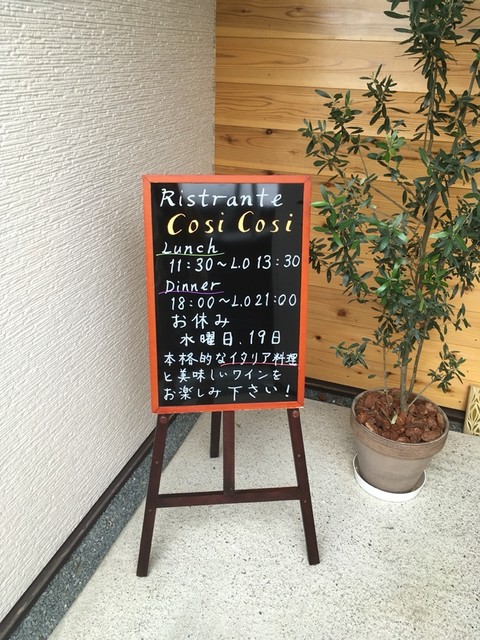 Ristrante
Cosi Cosi
Lunch
11:30～L.O 13:30
Dinner
18:00～L.O 21:00
お休み
水曜日.19日
本格的なイタリア料理
と美味しいワインを
お楽しみ下さい!